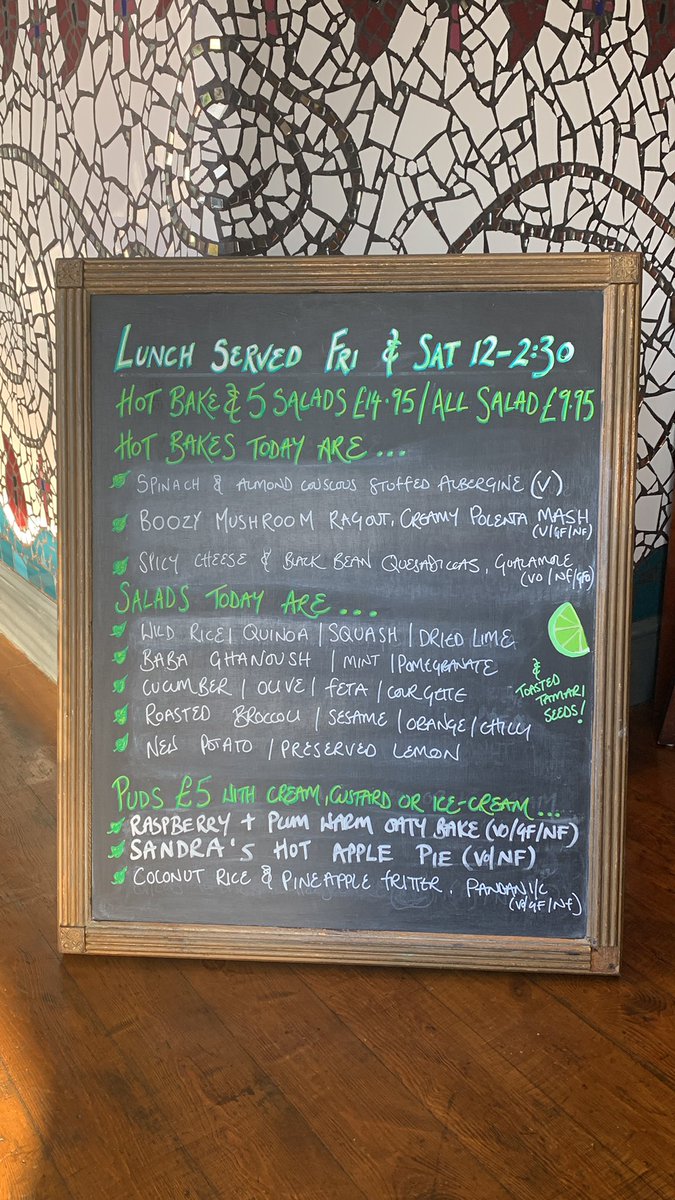 LUNCH SERVED FRI & SAT 12-2:30
HOT BAKE & 5 SALADS £14.95/ALL SALAD £9.95
HOT BAKES TODAY ARE...
SPINACH & ALMOND COUSCOUS STUFFED AUBERGINE (V)
BOOZY MUSHROOM RAGOUT, CREAMY POLENTA MASH
(V/GF/NF)
SPICY CHEESE & BLACK BEAN QUESADILLAS, GUACAMOLE
(VO/NF/GFO)
SALADS TODAY ARE...
WILD RICE/ QUINOA / SQUASH / DRIED LIME
BABA GHANOUSH / MINT / POMEGRANATE
CUCUMBER / OLIVE / FETA / COURGETTE
ROASTED BROCCOLI / SESAME / ORANGE / CHILLY
NEW POTATO / PRESERVED LEMON
&
TOASTED
TAMARI
SEEDS!
PUDS £5 WITH CREAM, CUSTARD OR ICE-CREAM...
RASPBERRY + PLUM WARM OATY BAKE (VO/GF/NF)
SANDRA'S HOT APPLE PIE (VO/NF)
COCONUT RICE & PINEAPPLE FRITTER, PANDAN I/C
(VO/GF/NF)